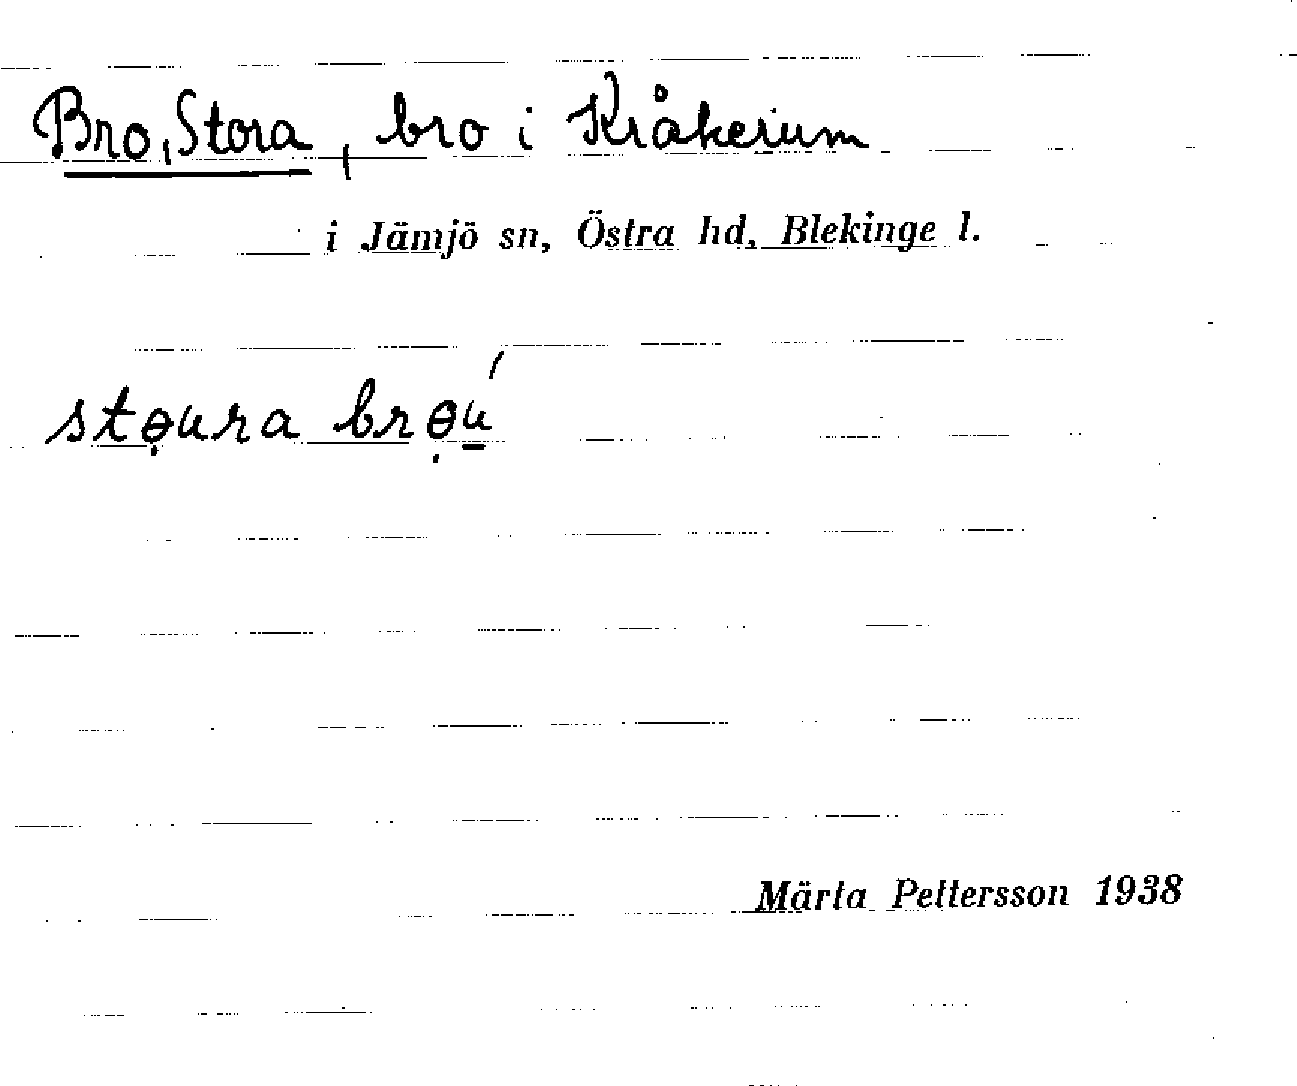 Bro, Stora, bro i Kråkerum
i Jämjö sn, Östra hd, Blekinge l.
stθ̣ura brθ̣ú̱
Märta Pettersson 1938